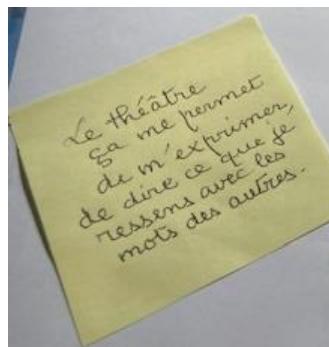 Le théâtre
ça me permet
de m'exprimer,
de dire ce que je
ressens avec les
mots des autres.